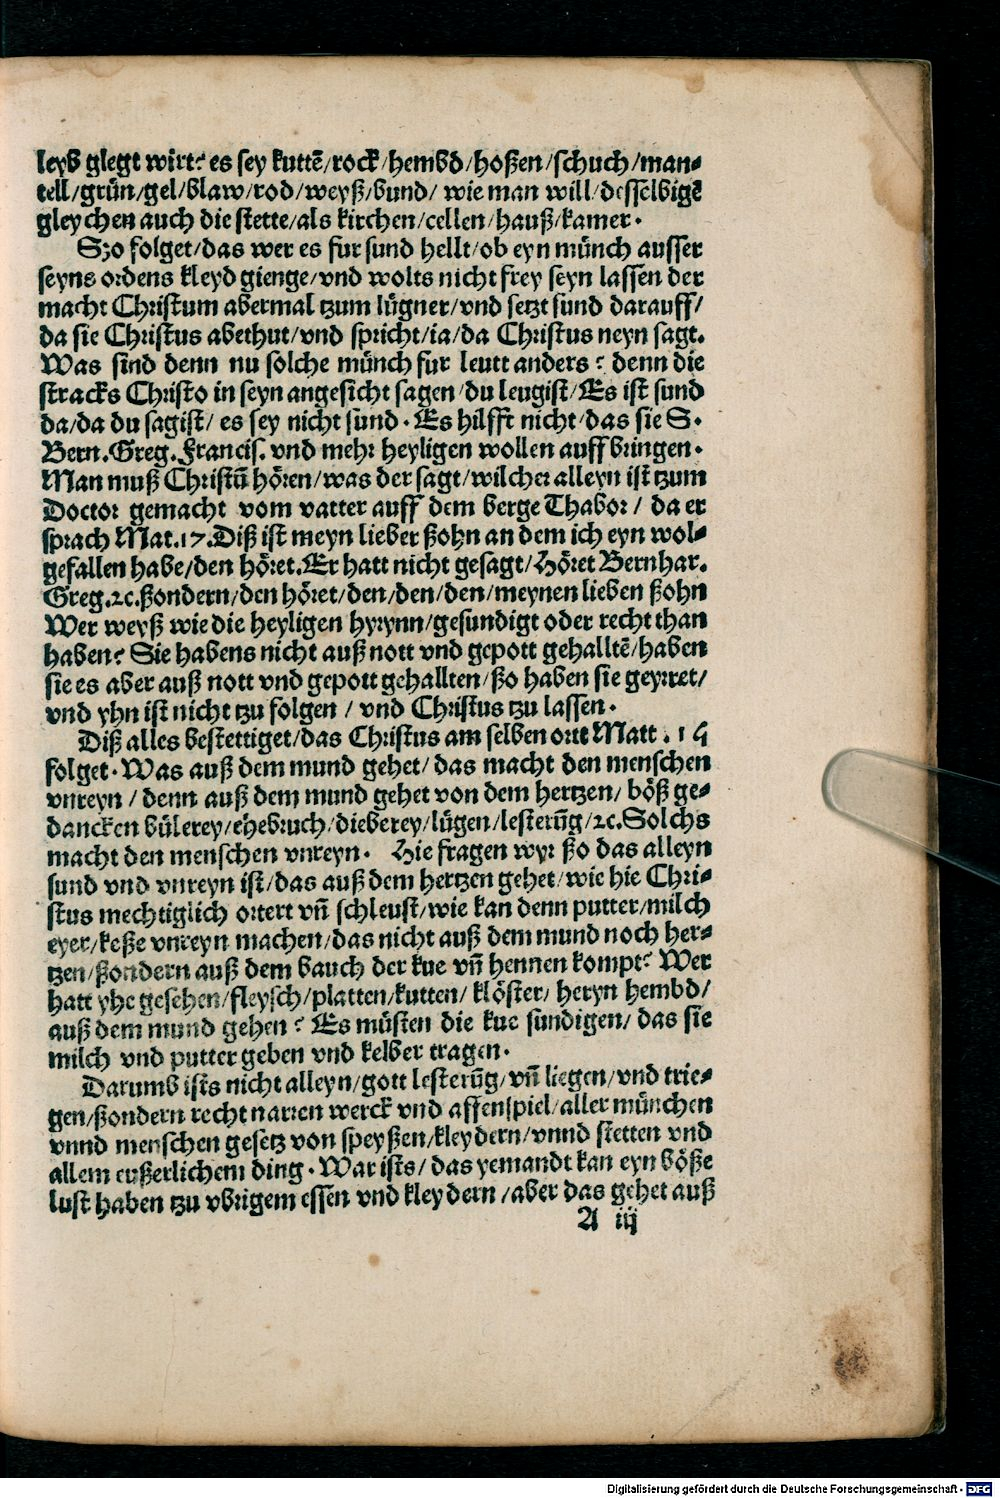 leyb glegt wirt? es sey kuttē/rock/hembd/hoßen/schuch/man⸗
tell/grün/gel/blaw/rod/weyß/bund/ wie man will/desselbigē
gleychen auch die stette/als kirchen/cellen/hauß/kamer.
Szo folget/das wer es fur sund hellt/ob eyn münch ausser
seyns ordens kleyd gienge/vnd wolts nicht frey seyn lassen der
macht Christum abermal tzum lügner/vnd setzt sund darauff/
da sie Christus abethut/vnd spricht/ia/da Christus neyn sagt.
Was sind denn nu solche münch fur leutt anders? denn die
stracks Christo in seyn angesicht sagen/du leugist/Es ist sund
da/da du sagist/ es sey nicht sund. Es hilfft nicht/das sie S.
Bern. Greg. Francis. vnd mehr heyligen wollen auff bringen.
Man muß Christū hören/was der sagt/wilcher alleyn ist tzum
Doctor gemacht vom vatter auff dem berge Thabor/ da er
sprach Mat.17. Diß ist meyn lieber ßohn an dem ich eyn wol⸗
gefallen habe/den höret. Er hatt nicht gesagt/Höret Bernhar.
Greg. ꝛc. ßondern/den höret/den/den/den/meynen lieben ßohn
Wer weyß wie die heyligen hyrynn/gesundigt oder recht than
haben? Sie habens nicht auß nott vnd gepott gehalltē/haben
sie es aber auß nott vnd gepott gehallten/ßo haben sie geyrret/
vnd yhn ist nicht tzu folgen / vnd Christus tzu lassen.
Diß alles bestettiget/das Christus am selben ortt Matt. 15
folget. Was auß dem mund gehet/das macht den menschen
vnreyn / denn auß dem mund gehet von dem hertzen/ böß ge⸗
dancken bülerey/ehebruch/dieberey/lügen/lesterūg/ꝛc. Solchs
macht den menschen vnreyn. Hie fragen wyr ßo das alleyn
sund vnd vnreyn ist/das auß dem hertzen gehet/wie hie Chri⸗
stus mechtiglich ortert vn̄ schleust/wie kan denn putter/milch
eyer/keße vnreyn machen/das nicht auß dem mund noch her⸗
tzen/ßondern auß dem bauch der kue vn̄ hennen kompt? Wer
hatt yhe gesehen/fleysch/platten/kutten/ klöster/ heryn hembd/
auß dem mund gehen? Es müsten die kue sundigen/ das sie
milch vnd putter geben vnd kelber tragen.
Darumb ists nicht alleyn/gott lesterūg/vn̄ liegen/vnd trie⸗
gen/ßondern recht narren werck vnd affenspiel/aller münchen
vnnd menschen gesetz von speyßen/kleydern/vnnd stetten vnd
allem eußerlichem ding. War ists/ das yemandt kan eyn böße
lust haben tzu vbrigem essen vnd kleydern /aber das gehet auß
A iij
Digitalisierung gefördert durch die Deutsche Forschungsgemeinschaft - DFG